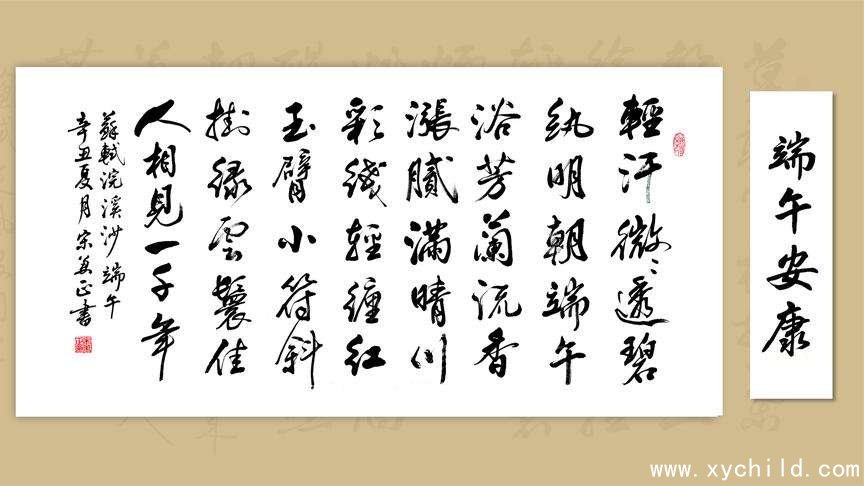 端午安康
輕汗微々透碧
紈明朝端午
浴芳蘭流香
漲膩滿晴川
彩线輕缠红
玉臂小符斜
掛绿雲鬟佳
人相見一千年
蘇軾浣溪沙端午
辛丑夏月宗
正書
www.xychild.com